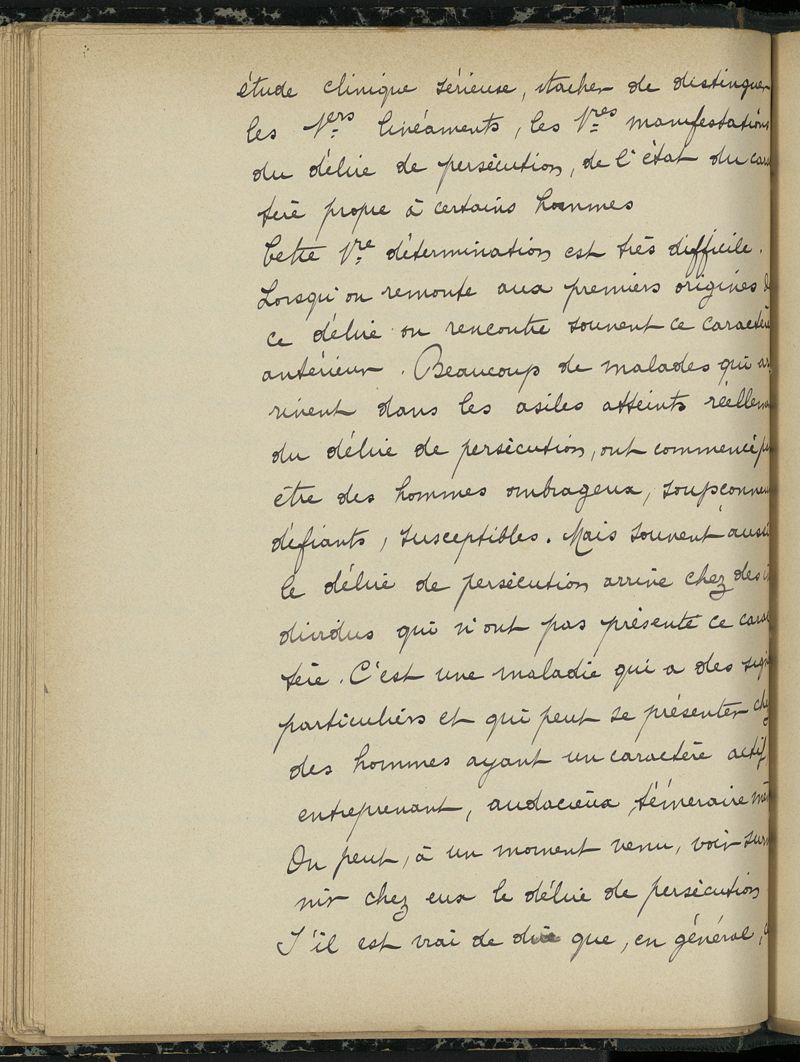 étude clinique sérieuse, tacher de distinguer
les 1ers linéaments, les 1res manifestations
du délire de persécution, de l'état du carac
tère propre à certains hommes
Cette 1re détermination est très difficile.
Lorsqu'on remonte aux premiers origines d
ce délire on rencontre souvent ce caractère
antérieur. Beaucoup de malades qui ar
rivent dans les asiles atteints réellem
du délire de persécution, ont commencé p
être des hommes ombrageux, soupçonneu
défiants, susceptibles. Mais souvent aussi
le délire de persécution arrive chez des i
dividus qui n'ont pas présenté ce carac
tère. C'est une maladie qui a des sign
particuliers et qui peut se présenter chez
des hommes ayant un caractère actif,
entreprenant, audacieux, téméraire mê
On peut, à un moment venu, voir surv
nir chez eux le délire de persécution
S'il est vrai de dire que, en général,